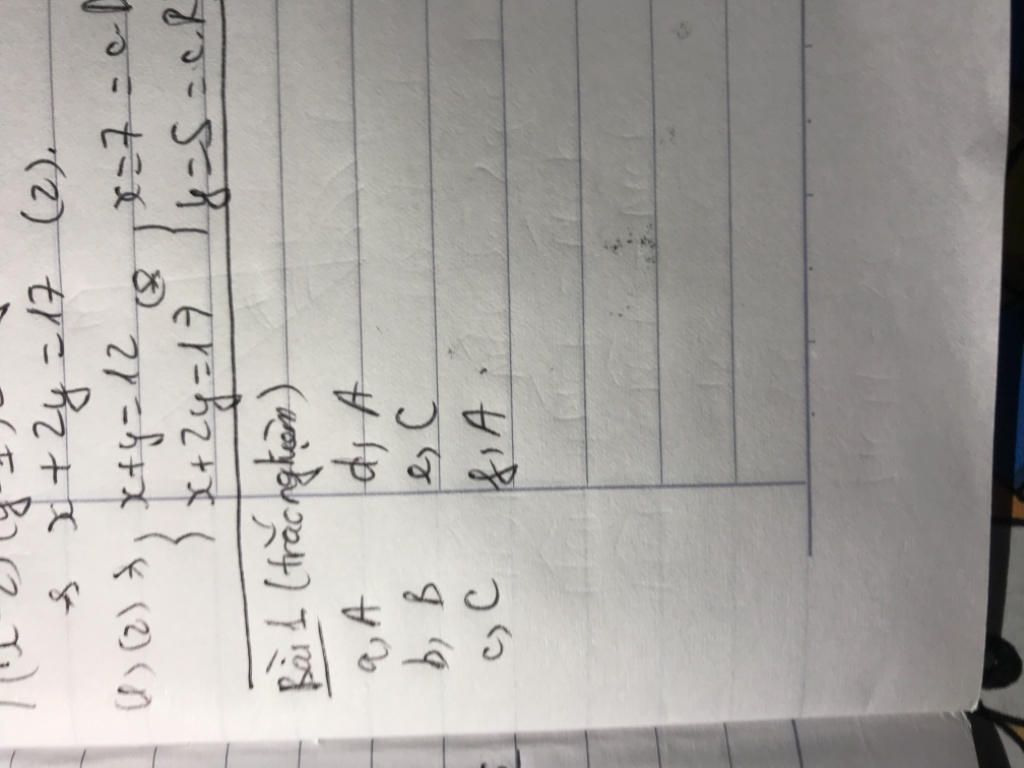 x + 2y = 17 (2).
(1), (2) → { x + y = 12 } x = 7 = c.
{ x + 2y = 17 (*) } y = 5 = c.R
Bài 1 (trắc nghiệm)
a, A d, A
b, B e, C
c, C f, A.